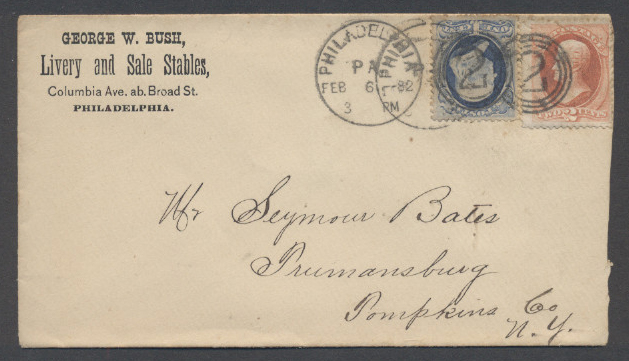 GEORGE W. BUSH,
Livery and Sale Stables,
Columbia Ave. ab. Broad St.
PHILADELPHIA.
PHILADELPHIA
PA
FEB 6 82
3 PM
PHILA
2
2
TWO 2 CENTS
Mr Seymour Bates
Trumansburg
Tompkins Co
N.Y.